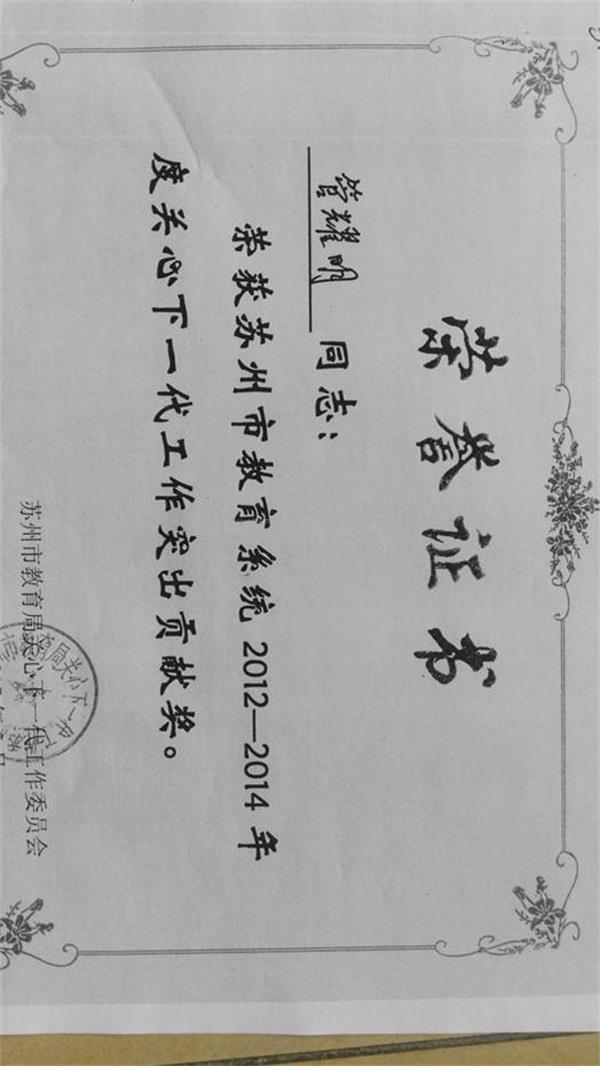 荣誉证书
管耀明 同志：
荣获苏州市教育系统2012—2014年
度关心下一代工作突出贡献奖。
苏州市教育局关心下一代工作委员会